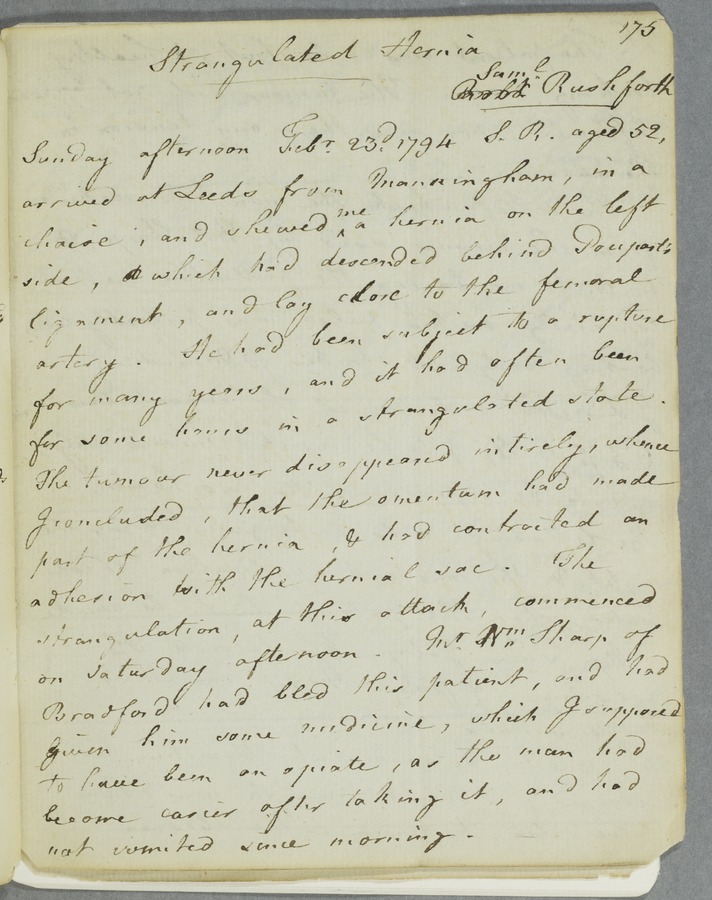 175
Strangulated Hernia
Saml.
Robt Rushforth
Sunday afternoon Febr. 23d. 1794 S. R. aged 52,
arrived at Leeds from Manningham, in a
chaise, and shewed me a hernia on the left
side, which had descended behind Poupart's
ligament, and lay close to the femoral
artery. He had been subject to a rupture
for many years, and it had often been
for some hours in a strangulated state.
The tumour never disappeared intirely, whence
I concluded, that the omentum had made
part of the hernia, & had contracted an
adhesion with the hernial sac. The
strangulation, at this attack, commenced
on saturday afternoon. Mr. Wm. Sharp of
Bradford had bled this patient, and had
given him some medicine, which I supposed
to have been an opiate, as the man had
become easier after taking it, and had
not vomited since morning.